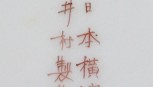 日本横
井村製